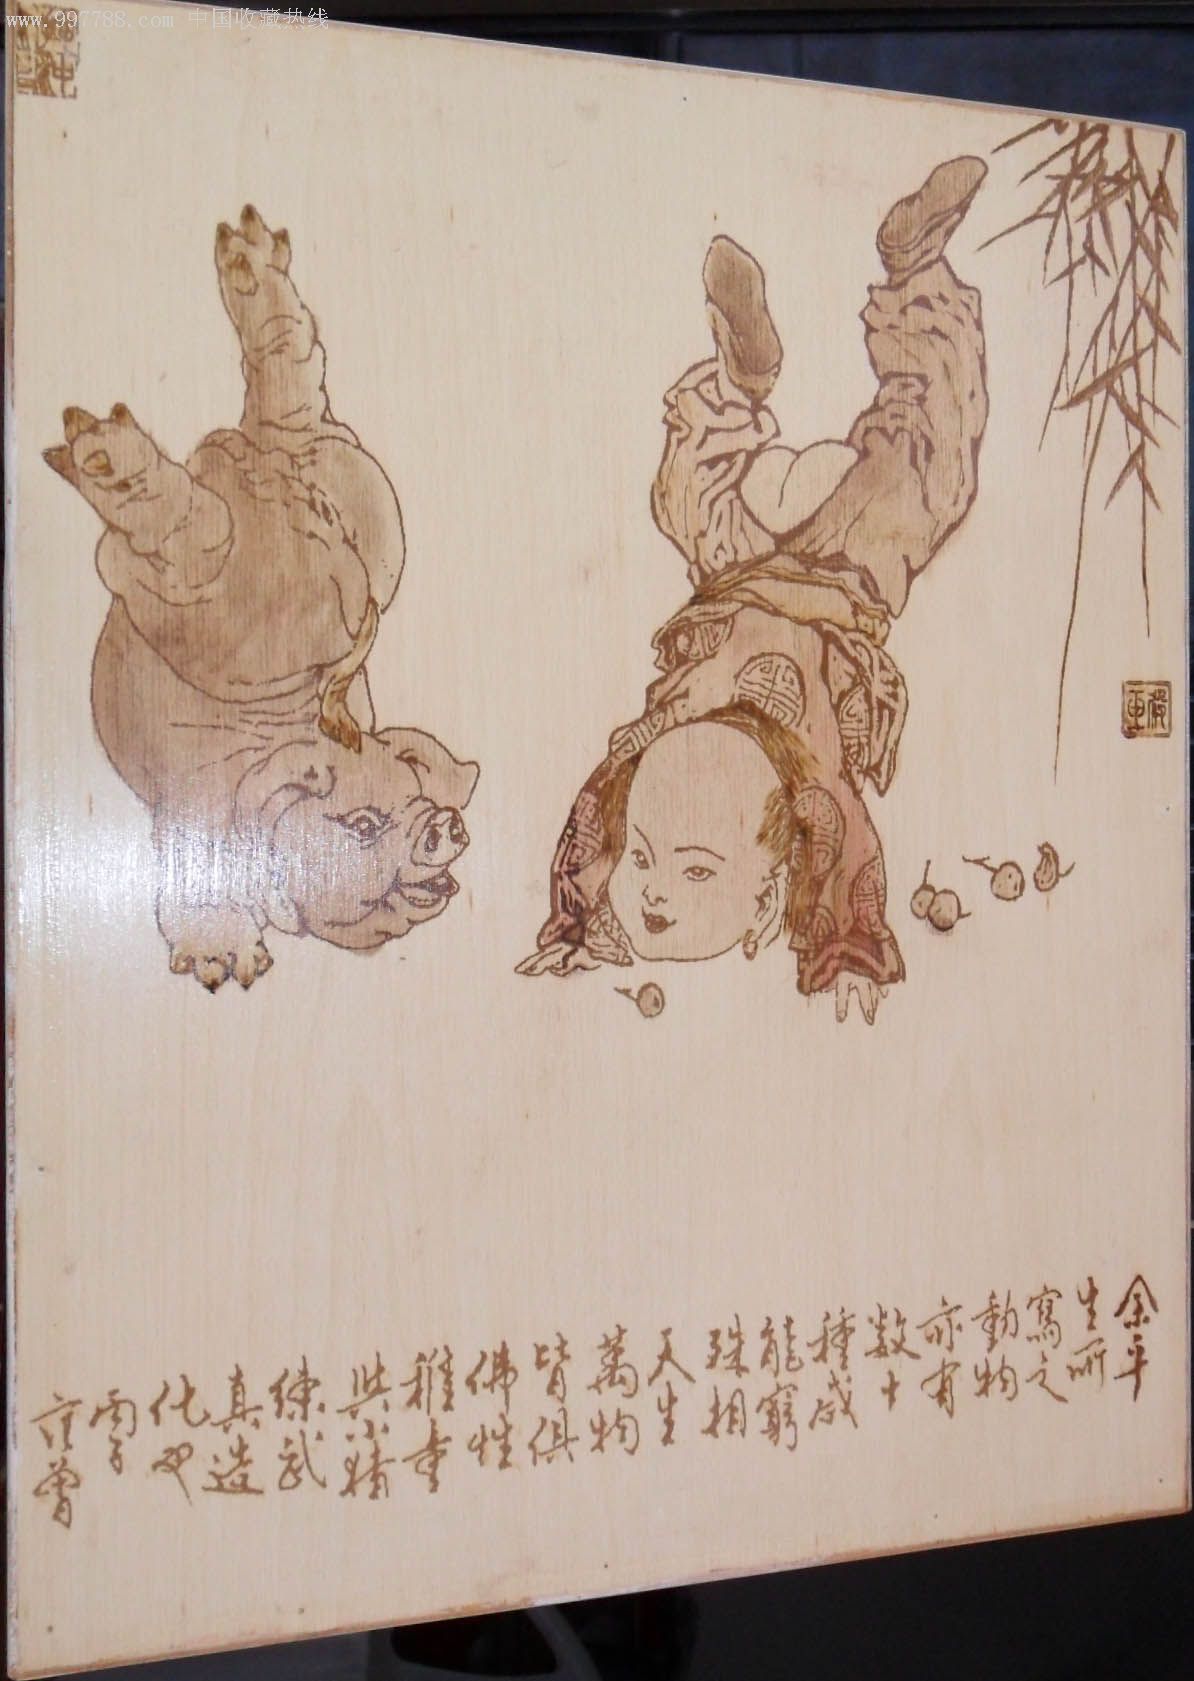 www.997788.com 中国收藏热线
余平
生所
寫之
動物
亦有
数十
種咸
能窮
殊相
天生
萬物
皆俱
佛性
稚童
與小猪
練武
真造
化也
范曾